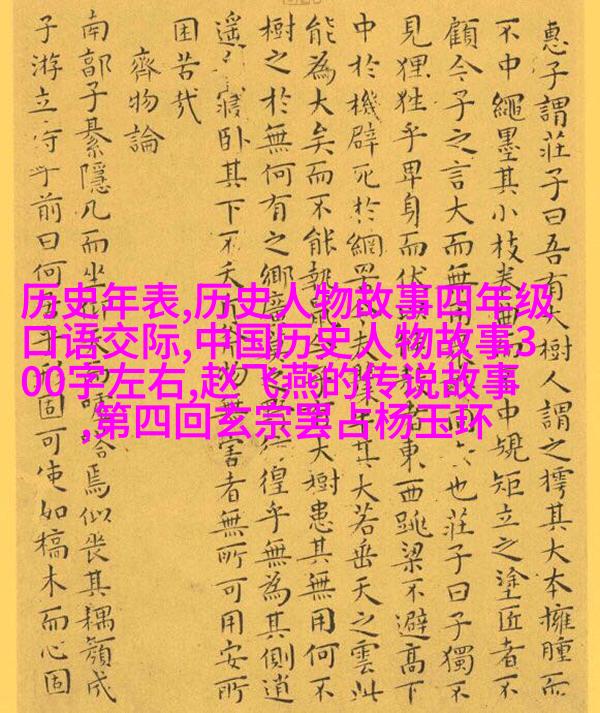 历史年表,历史人物故事四年级
口语交际,中国历史人物故事3
00字左右,赵飞燕的传说故事
,第四回玄宗罢占杨玉环
惠子謂莊子曰吾有大樹人謂之樗其大本擁腫而
不中繩墨其小枝卷中規矩立之塗匠者不
顧今子之言大而無用也莊子曰子獨不
見狸狌乎卑身而伏者東西跳梁不避高下
中於機辟死於網罟其大若垂天之雲此
能為大矣而不能執鼠今大樹患其無用何不
樹之於無何有之鄉廣莫徨乎無為其側逍
遙寢臥其下不夭物無害者無所可用安所
困苦哉
齊物論
南郭子綦隱几而坐仰噓焉似喪其耦顏成
子游立侍乎前曰何居乎形固可使如槁木而心固